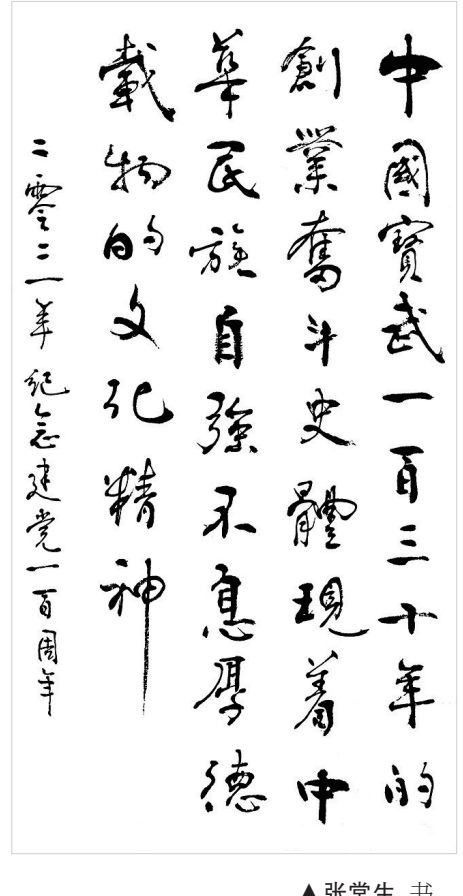 中國寶武一百三十年的
創業奮斗史體現着中
華民族自強不息厚德
載物的文化精神
二零二一年纪念建党一百周年
▲张常生 书